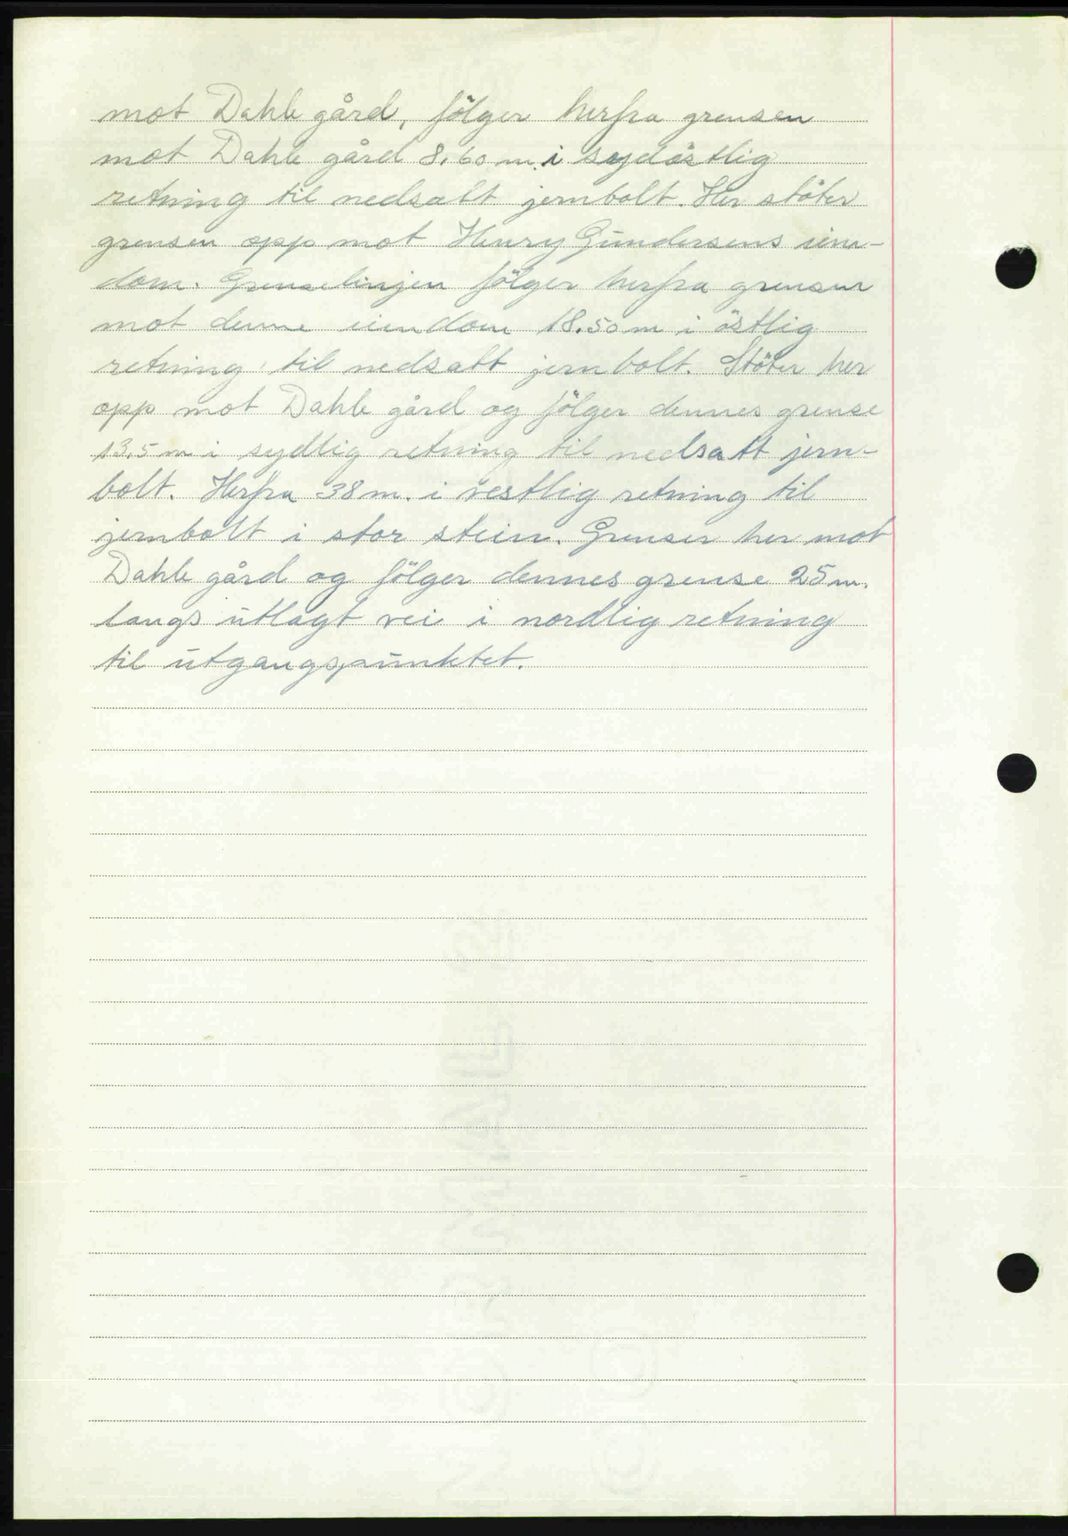 mot Dahle gård, fölger herfra grensen
mot Dahle gård 8.60 m. i sydöstlig
retning til nedsatt jernbolt. Her stöter
grensen opp mot Henry Gundersens eien-
dom. Grenselinjen fölger herfra grensen
mot denne eiendom 18.50 m i östlig
retning til nedsatt jernbolt. Stöter her
opp mot Dahle gård og fölger dennes grense
13.5 m i sydlig retning til nedsatt jern-
bolt. Herfra 38 m. i vestlig retning til
jernbolt i stor stein. Grenser her mot
Dahle gård og fölger dennes grense 25 m.
langs utlagt vei i nordlig retning
til utgangspunktet.